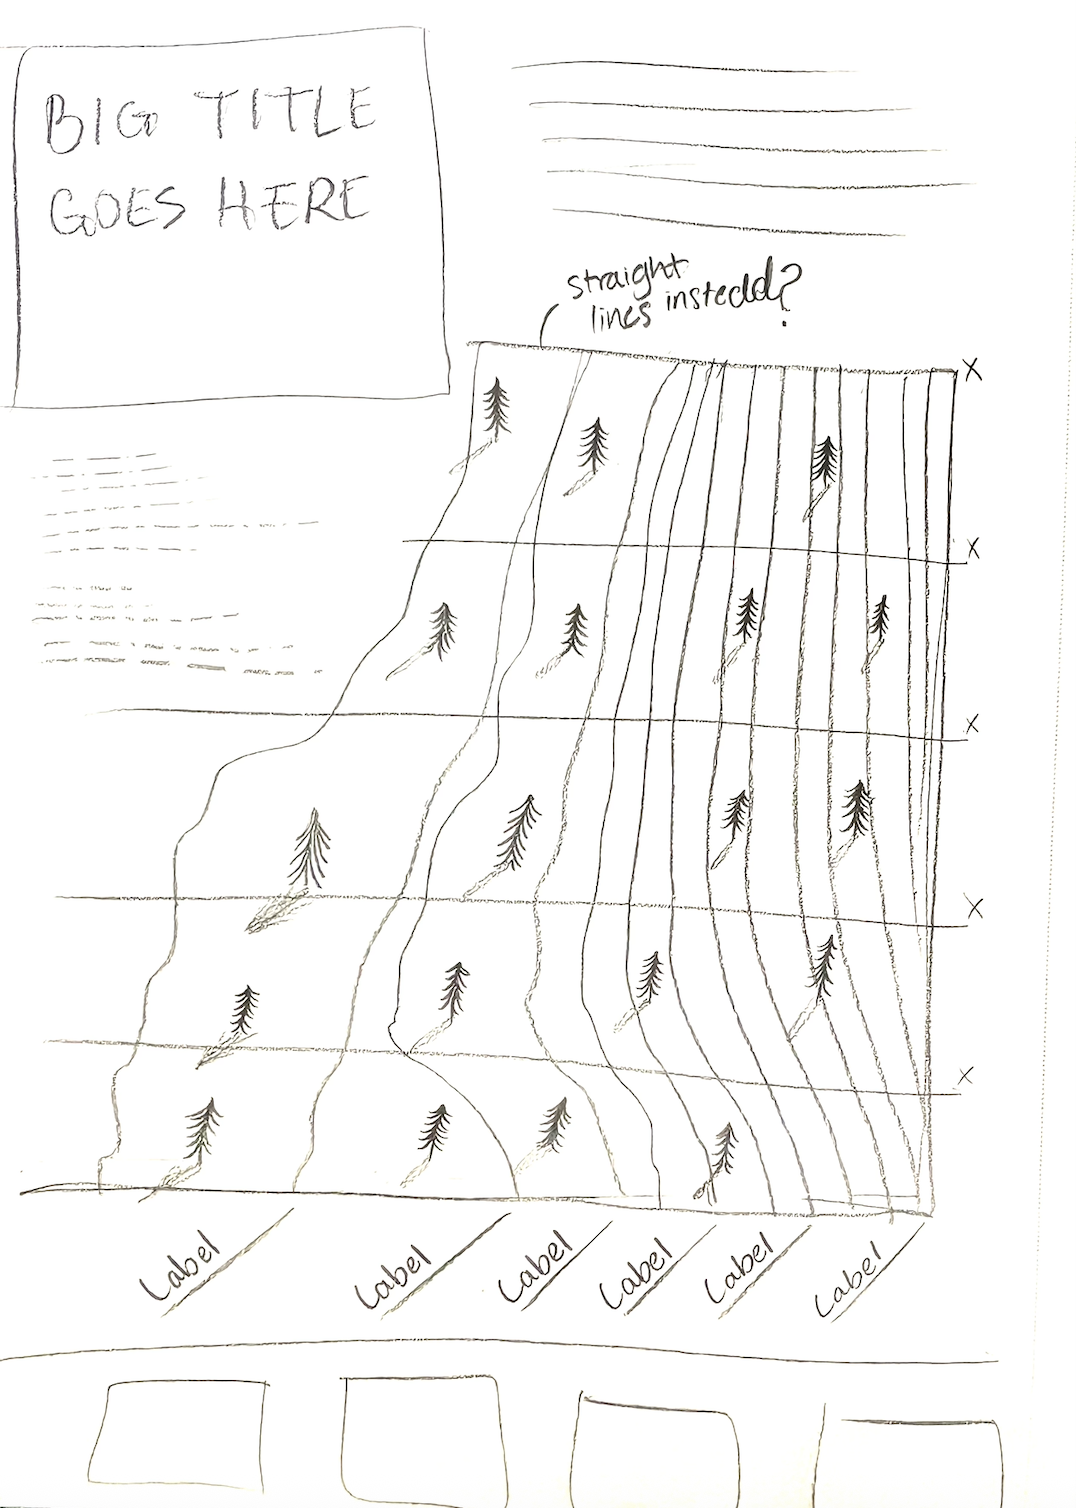 BIG TITLE
GOES HERE
straight
lines instead?
X
X
X
X
X
Label
Label
Label
Label
Label
Label